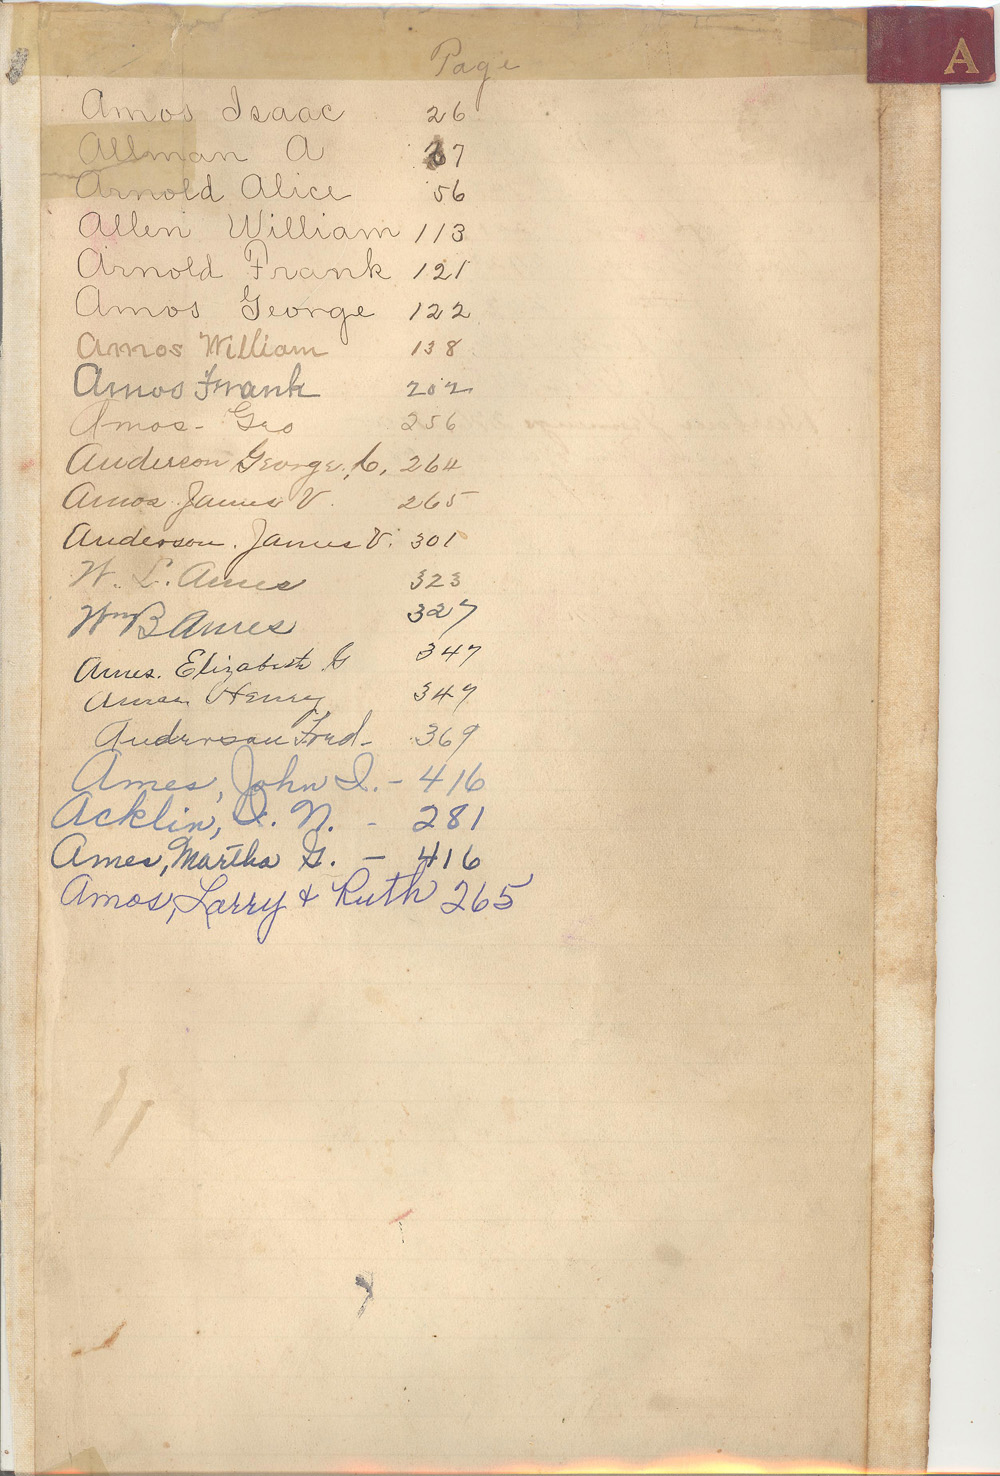 A
Page
Amos Isaac 26
Allman A 37
Arnold Alice 56
Allen William 113
Arnold Frank 121
Amos George 122
Amos William 138
Amos Frank 202
Amos - Geo 256
Anderson George, C, 264
Amos James V. 265
Anderson, James V. 301
W. L. Ames 323
Wm B Ames 327
Ames. Elizabeth G 347
Henry 347
Anderson Fred - 369
Ames, John I. - 416
Acklin, D. N. - 281
Ames, Martha G. - 416
Amos, Larry & Ruth 265